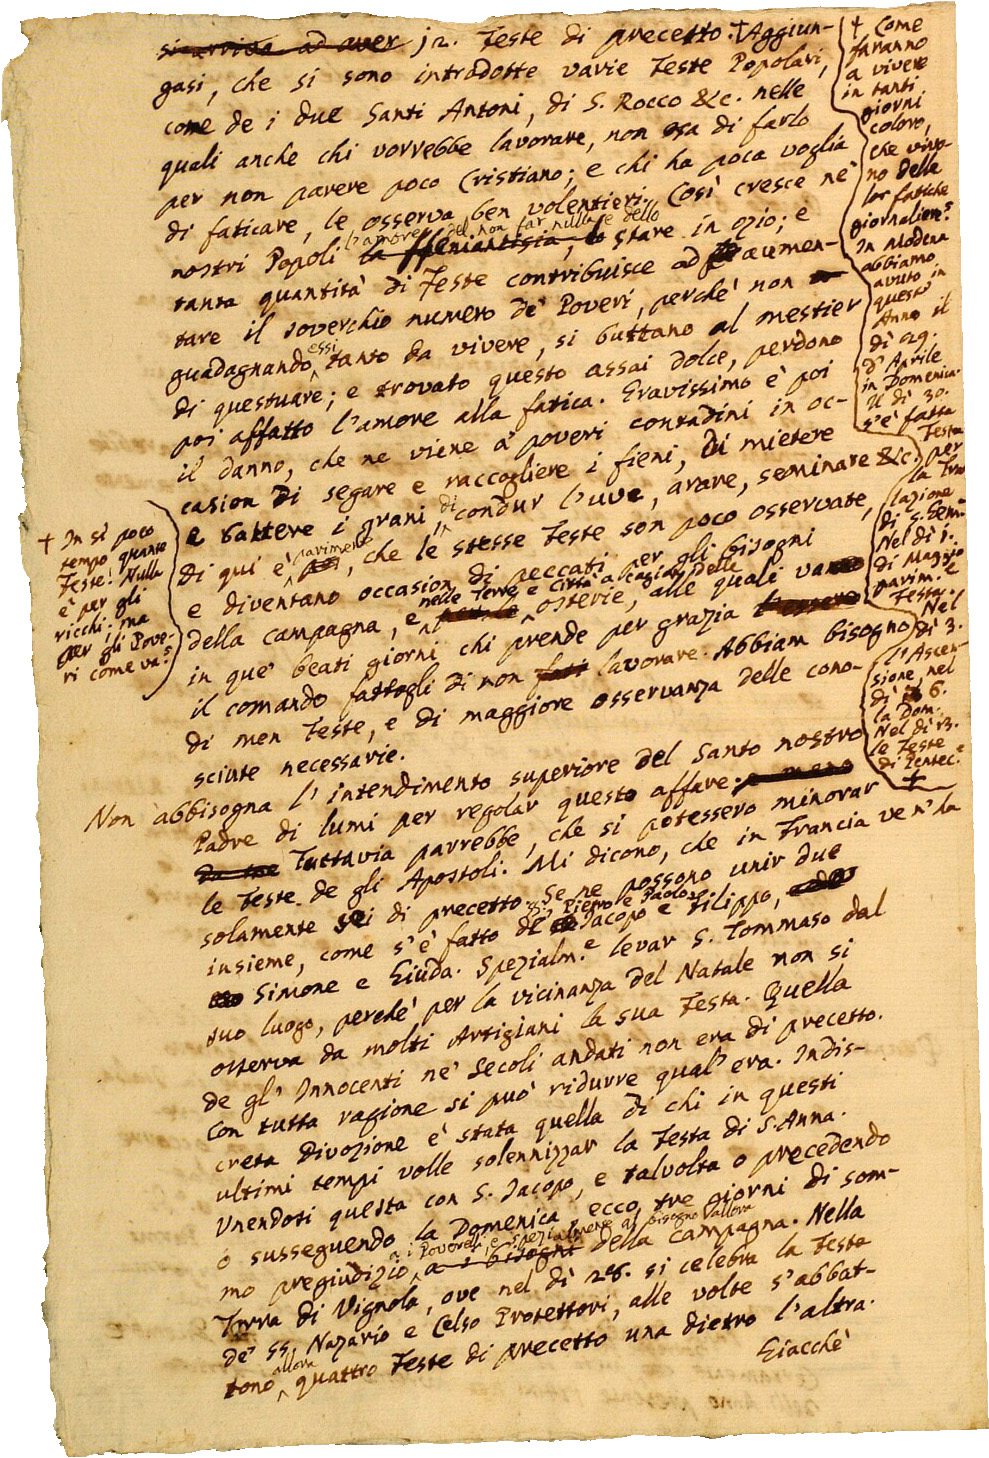 si arriva ad aver 12. Feste di precetto. + Aggiun-
gasi, che si sono introdotte varie Feste Popolari,
come de i due Santi Antoni, di S. Rocco &c. nelle
quali anche chi vorrebbe lavorare, non osa di farlo
per non parere poco Cristiano; e chi ha poca voglia
di faticare, le osserva ben volentieri. Così cresce ne'
l'amore del non far nulla e dello
nostri Popoli la stare in ozio; e
tanta quantità di Feste contribuisce ad aumen-
tare il soverchio numero de' Poveri, perchè non
guadagnando essi tanto da vivere, si buttano al mestier
di questuare; e trovato questo assai dolce, perdono
poi affatto l'amore alla fatica. Gravissimo è poi
il danno, che ne viene a' poveri contadini in oc-
casion di segare e raccogliere i fieni, di mietere
e battere i grani, di condur l'uve, arare, seminare &c.
Di qui è parimente, che le stesse Feste son poco osservate,
e diventano occasion di peccati per gli bisogni
nelle Terre e Città a cagion delle
della campagna, e osterie, alle quali va
in que' beati giorni chi prende per grazia
il comando fattogli di non lavorare. Abbiam bisogno
di men Feste, e di maggiore osservanza delle cono-
sciute necessarie.
Non abbisogna l'intendimento superiore del Santo nostro
Padre di lumi per regolar questo affare.
Tuttavia parrebbe, che si potessero minorar
le Feste de gli Apostoli. Mi dicono, che in Francia ve n'ha
solamente sei di precetto. Se ne possono unir due
insieme, come s'è fatto de' SS. Pietro e Paolo, Jacopo e Filippo,
Simone e Giuda. Spezialm.e levar S. Tommaso dal
suo luogo, perchè per la vicinanza del Natale non si
osserva da molti Artigiani la sua Festa. Quella
de gl'Innocenti ne' Secoli andati non era di precetto.
Con tutta ragione si può ridurre qual'era. Indis-
creta Divozione è stata quella di chi in questi
ultimi tempi volle solennizzar la Festa di S. Anna.
Unendosi questa con S. Jacopo, e talvolta o precedendo
o susseguendo la Domenica, ecco tre giorni di som-
a i Poverelli, e spezialmente al bisogno allora
mo pregiudizio a i bisogni della campagna. Nella
Terra di Vignola, ove nel dì 28. si celebra la Festa
de' SS. Nazario e Celso Protettori, alle volte s'abbat-
tono allora quattro Feste di precetto una dietro l'altra.
Giacchè
+ Come
faranno
a vivere
in tanti
giorni
coloro,
che vivo-
no delle
lor fatiche
giornaliere?
In Modena
abbiamo
avuto in
quest'
Anno il
dì 29.
d'Aprile
in Domenica.
Il dì 30.
s'è fatta
Festa
per
la Tras
lazione
di S. Gem.
Nel dì 1.
di Maggio
parim.e
Festa.
Nel
dì 3.
l'Ascen-
sione, nel
dì 6.
la Dom.
Nel dì 13.
le Feste
di Pentec.e
+
+ In sì poco
tempo quante
Feste! Nulla
è per gli
ricchi: ma
per gli Pove-
ri come va?